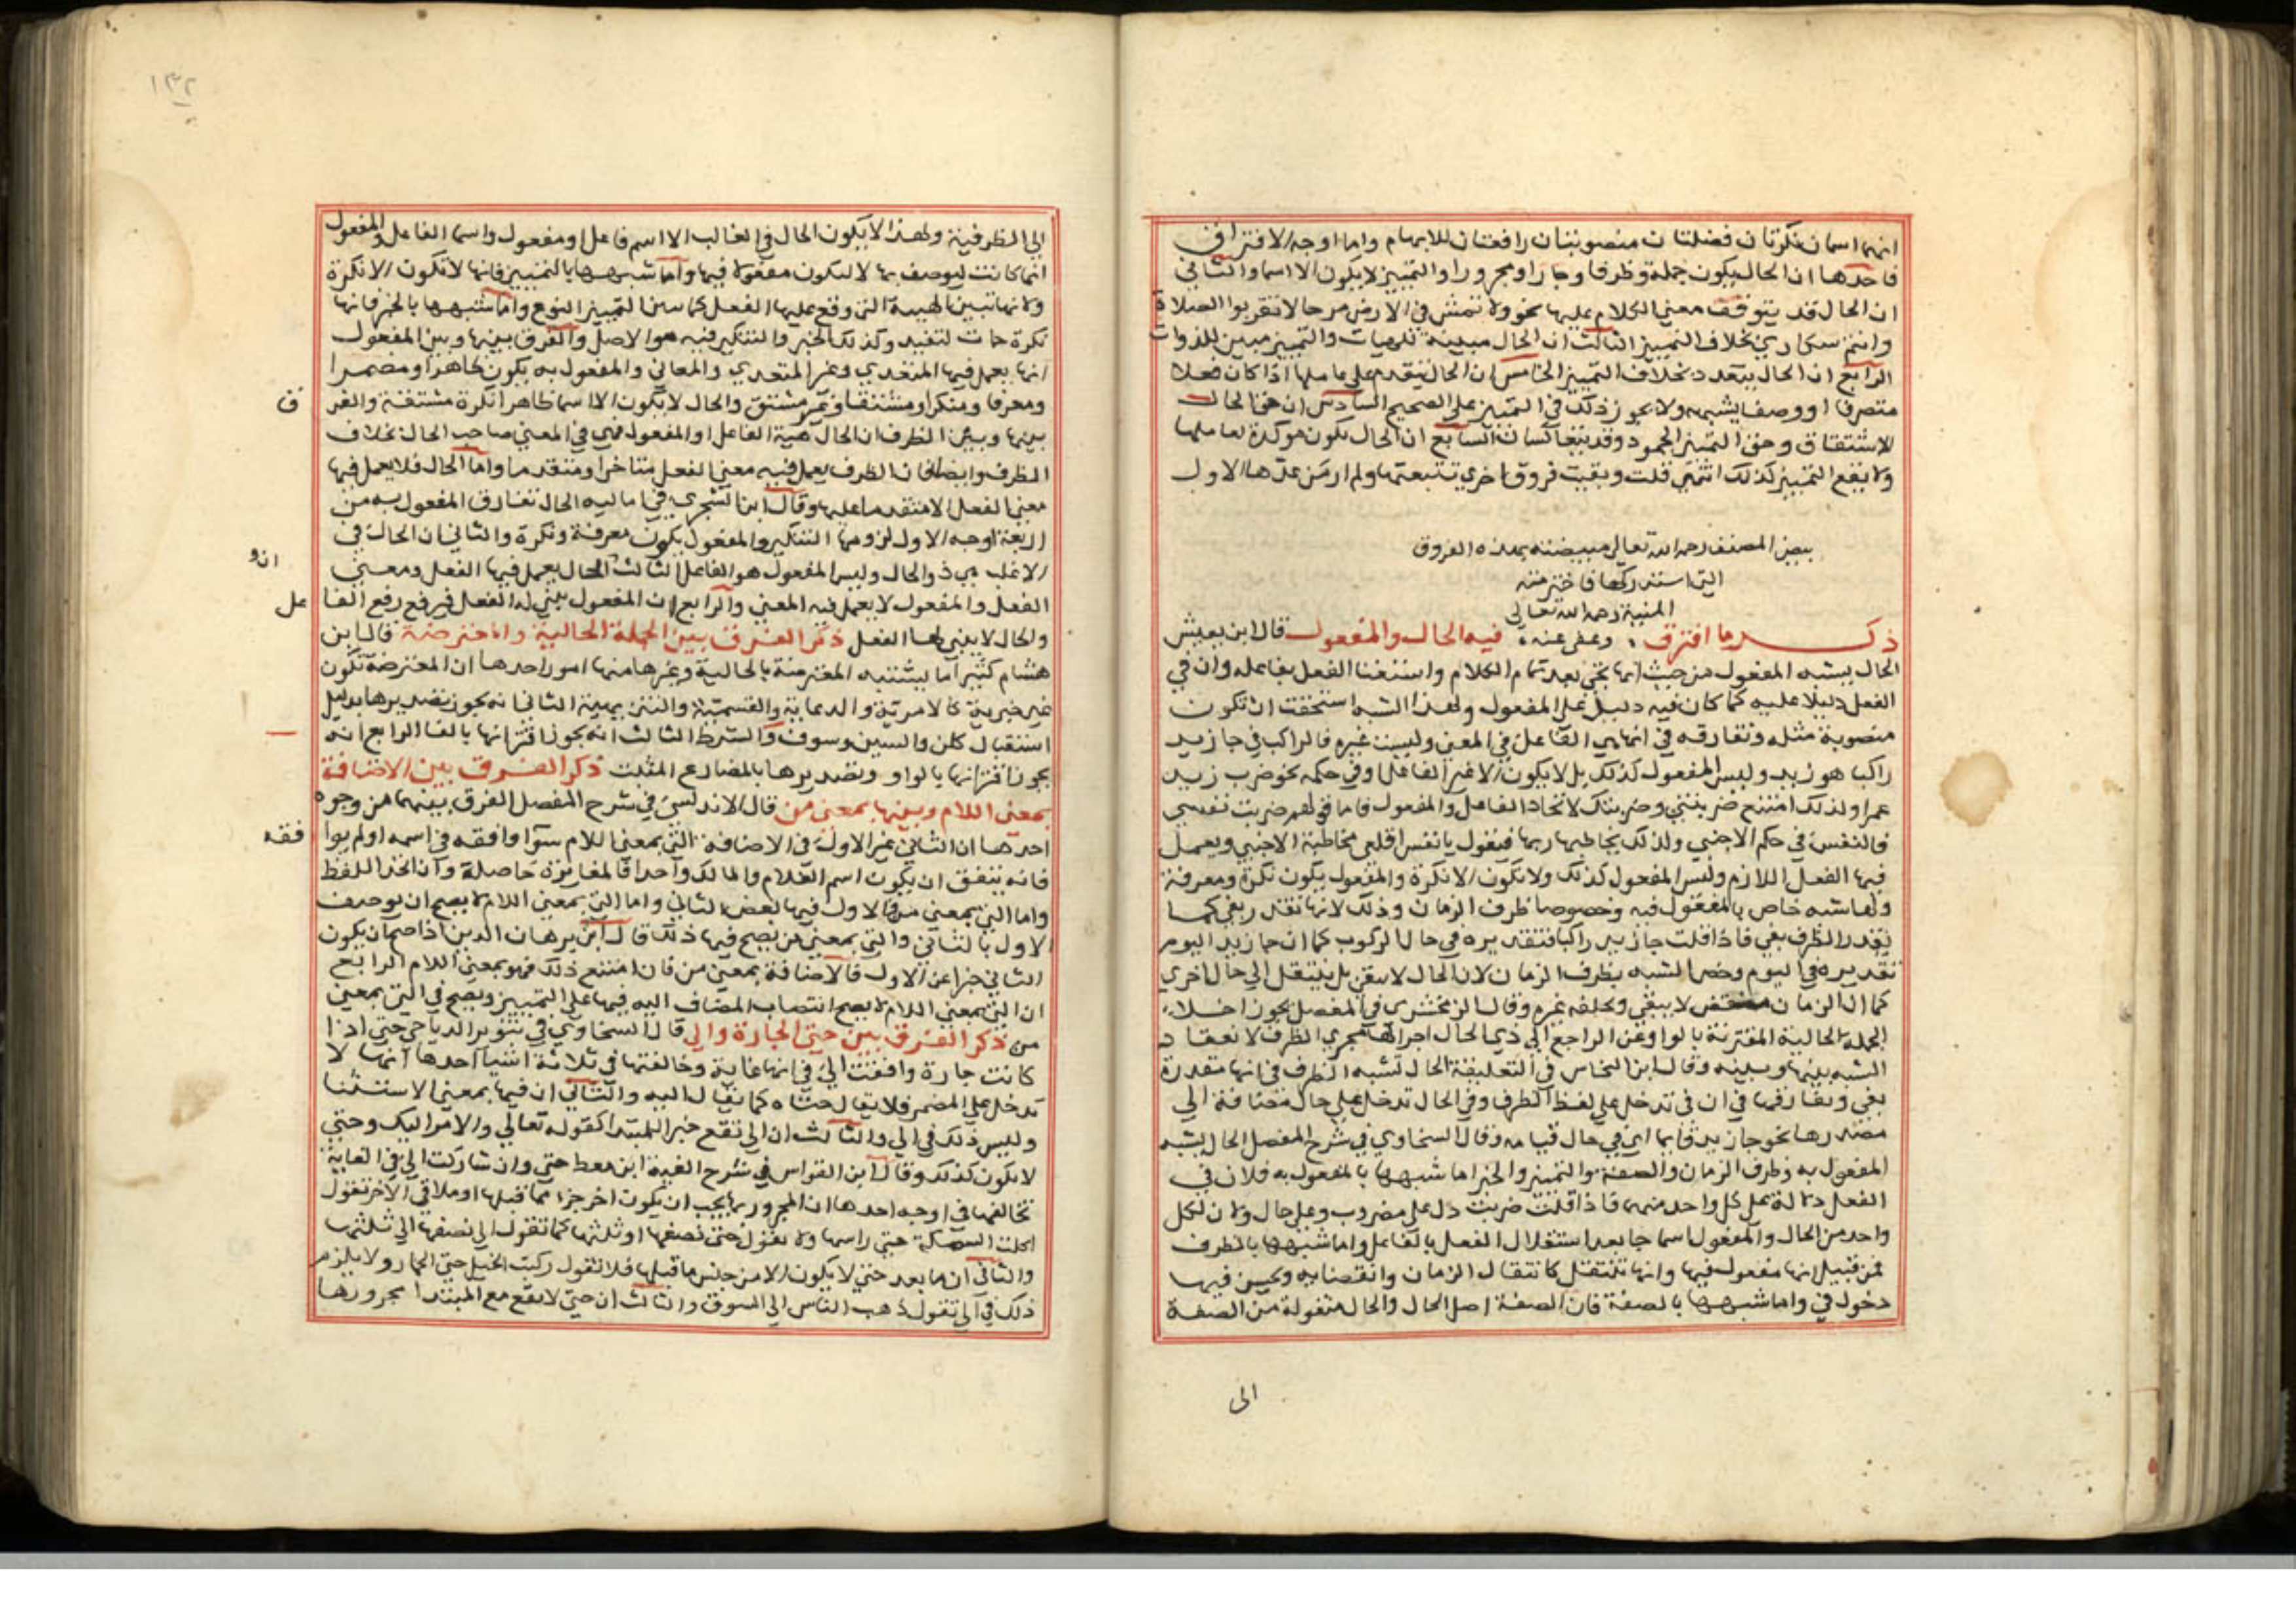 انهما اسمان نكرتان فضلتان منصوبتان رافعتان للابهام واما اوجه الافتراق
فاحدها ان الحال يكون جملة وظرفا وجارا ومجرورا والتمييز لا يكون الا اسما والثاني
ان الحال قد يتوقف معني الكلام عليها نحو ولا تمش في الارض مرحا لا تقربوا الصلاة
وانتم سكاري بخلاف التمييز الثالث ان الحال مبينة للهيات والتمييز مبين للذوات
الرابع ان الحال يتعدد بخلاف التمييز الخامس ان الحال تتقدم علي عاملها اذا كان فعلا
متصرفا او وصفا يشبهه ولا يجوز ذلك في التمييز علي الصحيح السادس ان حق الحال
الاشتقاق وحق التمييز الجمود وقد يتعاكسان السابع ان الحال تكون موكدة لعاملها
ولا يقع التمييز كذلك انتهي قلت وبقيت فروق اخري تتبعتها ولم ار من عدها الاول
بيض المصنف رحمه الله تعالي مبيضته بهذه الفروق
التي استدركها فاخترمته
المنية رحمه الله تعالي
ذكر ما افترق وعفي عنه فيه الحال والمفعول قال ابن يعيش
الحال يشبه المفعول من حيث انها تجي بعد تمام الكلام واستغنا الفعل بفاعله وان في
الفعل دليلا عليه كما كان فيه دليل علي المفعول ولهذا الشبه استحقت ان تكون
منصوبة مثله وتفارقه في انها هي الفاعل في المعني وليست غيره فالراكب في جا زيد
راكبا هو زيد وليس المفعول كذلك بل لا يكون الا غير الفاعل او في حكمه نحو ضرب زيد
عمرا ولذلك امتنع ضربتني وضربتك لاتحاد الفاعل والمفعول فاما قولهم ضربت نفسي
فالنفس في حكم الاجنبي ولذلك يخاطبها ربها فيقول يا نفس اقلعي مخاطبة الاجنبي ويعمل
فيها الفعل اللازم وليس المفعول كذلك ولا تكون الا نكرة والمفعول يكون نكرة ومعرفة
ولها شبه خاص بالمفعول فيه وخصوصا ظرف الزمان وذلك لانها تقدر بفي كما
يقدر الظرف بفي فاذا قلت جا زيد راكبا فتقديره في حال الركوب كما ان جا زيد اليوم
تقديره في اليوم وخص الشبه بظرف الزمان لان الحال لا يبقي بل ينتقل الي حال اخري
كما ان الزمان منقض لا يبقي ويخلفه غيره وقال الزمخشري في المفصل يجوز اخلاء
الجملة الحالية المقترنة بالواو عن الراجع الي ذي الحال اجرا لها مجري الظرف لانعقاد
الشبه بينها وبينه وقال ابن النحاس في التعليقة الحال تشبه الظرف في انها مقدرة
بفي ويفارقها في ان في تدخل علي لفظ الظرف وفي الحال تدخل علي حال مضافة الي
مصدرها نحو جا زيد قايما اي في حال قيامه وقال السخاوي في شرح المفصل الحال يشبه
المفعول به وظرف الزمان والصفة والتمييز والخبر اما شبهها بالمفعول به فلان في
الفعل دلالة علي كل واحد منهما فاذا قلت ضربت دل علي مضروب وعلي حال ولان لكل
واحد من الحال والمفعول اسما جا بعد استقلال الفعل بالفاعل واما شبهها بالظرف
فمن قبيل انها مفعول فيها وانها تنتقل كانتقال الزمان وانقضايه ويحسن فيها
دخول في واما شبهها بالصفة فان الصفة اصل الحال والحال منقولة من الصفة
الى
١٣٢
الي الظرفية ولهذا لا يكون الحال في الغالب الا اسم فاعل او مفعول واسما الفاعل والمفعول
انما كانت ليوصف بها لا ليكون مفعولا فيها واما شبهها بالتمييز فانها لا تكون الا نكرة
ولانها تبين الهيئة التي وقع عليها الفعل كما يبين التمييز النوع واما شبهها بالخبر فانها
نكرة جات لتفيد وكذلك الخبر والتنكير فيه هو الاصل والفرق بينها وبين المفعول
انها يعمل فيها المتعدي وغير المتعدي والمعاني والمفعول به يكون ظاهرا ومضمرا
ومعرفا ومنكرا ومشتقا وغير مشتق والحال لا يكون الا اسما ظاهرا نكرة مشتقة والفر
ق
بينها وبين الظرف ان الحال هيئة الفاعل او المفعول فهي في المعني صاحب الحال بخلاف
الظرف وايضا فان الظرف يعمل فيه معني الفعل متاخرا ومتقدما واما الحال فلا يعمل فيها
معني الفعل الا متقدما عليها وقال ابن الشجري في اماليه الحال تفارق المفعول به من
اربعة اوجه الاول لزومها التنكير والمفعول يكون معرفة ونكرة والثاني ان الحال في
الاغلب هي ذو الحال وليس المفعول هو الفاعل الثالث الحال يعمل فيها الفعل ومعني
الفعل والمفعول لا يعمل فيه المعني والرابع ان المفعول يبني له الفعل فيرفع رفع الفا
عل
والحال لا يبني لها الفعل ذكر الفرق بين الجملة الحالية والمعترضة قال ابن
هشام كثيرا ما يشتبه المعترضة بالحالية وغيرها منها امور احدها ان المعترضة تكون
غير خبرية كالامرية والدعاية والقسمية والتنزيهية الثاني انه يجوز تصديرها بدليل
استقبال كلن والسين وسوف والشرط الثالث انه يجوز اقترانها بالفا الرابع انه
يجوز اقترانها بالواو وتصديرها بالمضارع المثبت ذكر الفرق بين الاضافة
بمعني اللام وبينها بمعني من قال الاندلسي في شرح المفصل الفرق بينهما من وجوه
احدها ان الثاني غير الاول في الاضافة التي بمعني اللام سوا وافقه في اسمه او لم يوا
فقه
فانه يتفق ان يكون اسم الغلام والمالك واحدا فالمغايرة حاصلة وان اتحد اللفظ
واما التي بمعني من فالاول فيها بعض الثاني واما التي بمعني اللام لا يصح ان يوصف
الاول بالثاني والتي بمعني من يصح فيها ذلك قال ابن برهان الدين اذا صح ان يكون
الثاني خبرا عن الاول فالاضافة بمعني من فان امتنع ذلك فهو بمعني اللام الرابع
ان التي بمعني اللام لا يصح انتصاب المضاف اليه فيها علي التمييز ويصح في التي بمعني
من ذكر الفرق بين حتي الجارة والي قال السخاوي في تنوير الدياجي حتي اذا
كانت جارة وافقت الي في انها غاية وخالفتها في ثلاثة اشيا احدها انها لا
تدخل علي المضمر فلا يقال حتاه كما يقال اليه والثاني ان فيها بمعني الاستثنا
وليس ذلك في الي والثالث ان الي تقع خبر المبتدا كقوله تعالي والامر اليك وحتي
لا تكون كذلك وقال ابن القواس في شرح الفية ابن معط حتي وان شاركت الي في الغاية
تخالفها في اوجه احدها ان المجرور بها يجب ان يكون اخر جزء مما قبلها او ملاقي الاخر تقول
اكلت السمكة حتي راسها ولا تقول حتي نصفها او ثلثها كما تقول الي نصفها الي ثلثها
والثاني ان ما بعد حتي لا يكون الا من جنس ما قبلها فلا تقول ركبت الخيل حتي الحمار ولا يلزم
ذلك في الي تقول ذهب الناس الي السوق والثالث ان حتي لا تقع مع المبتدا مجرورها